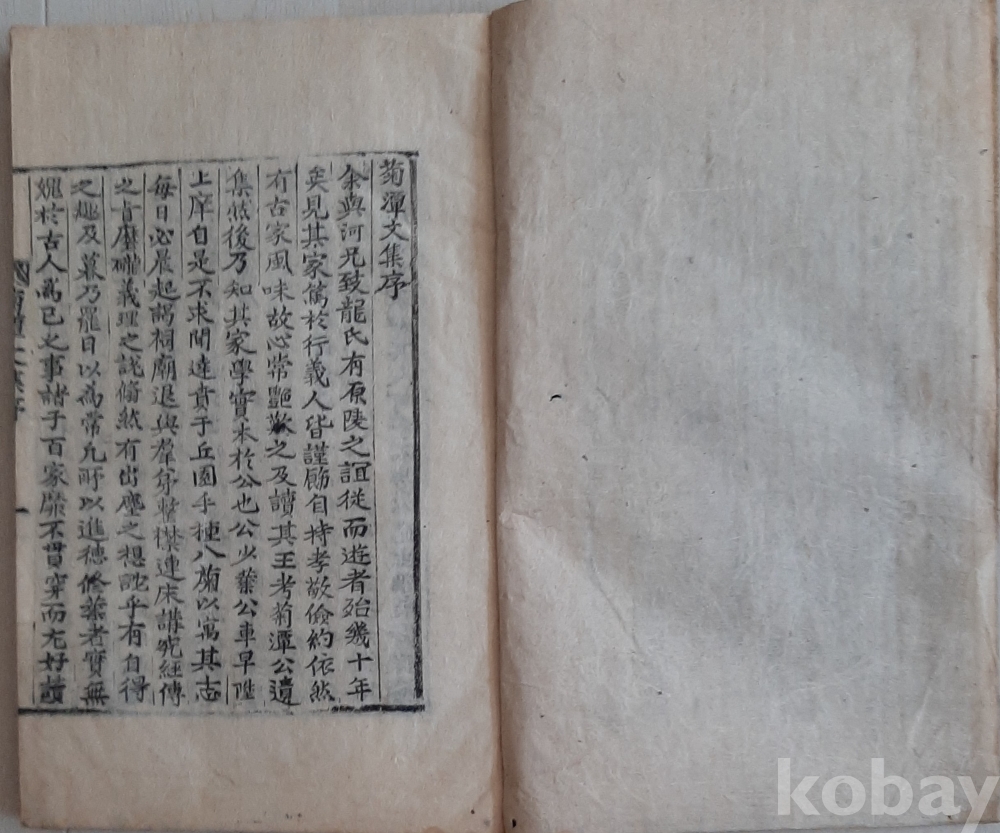 菊潭文集序
余與河兄致龍氏有原陵之誼從而遊者殆幾十年
矣見其家篤於行義人皆謹飭自持孝敬儉約依然
有古家風味故心常艷歎之及讀其王考菊潭公遺
集然後乃知其家學實本於公也公少業公車早陞
上庠自是不求聞達賁于丘園手揰八蘭以寓其志
每日必晨起謁祠廟退與羣弟整襟連床講究經傳
之旨磨礲義理之說翛然有出塵之想訑乎有自得
之趣及暮乃罷日以爲常凡所以進德修業者實無
媿於古人爲己之事諸子百家靡不貫穿而尤好讀
菊潭文集序
一
kobay